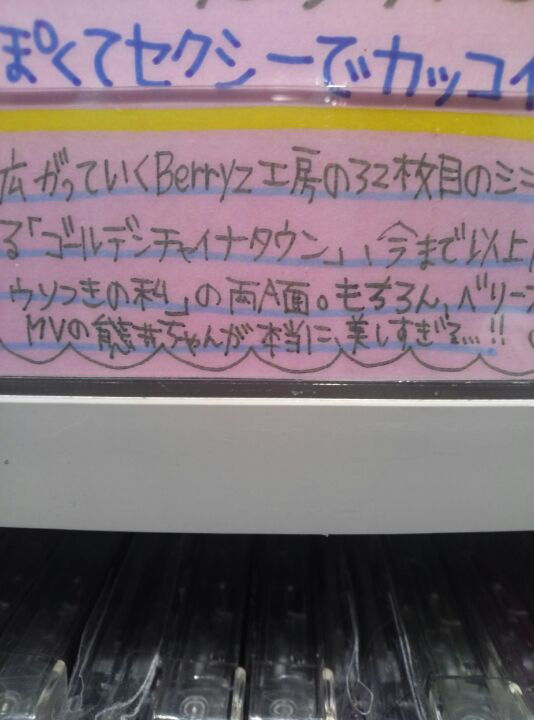 ぽくてセクシーでカッコイ
広がっていくBerryz工房の32枚目のシ
る「ゴールデンチャイナタウン」、今まで以上
ウソつきの科」の両A面。もちろん、ベリーズ
MVの熊井ちゃんが本当に、美しすぎて…!!